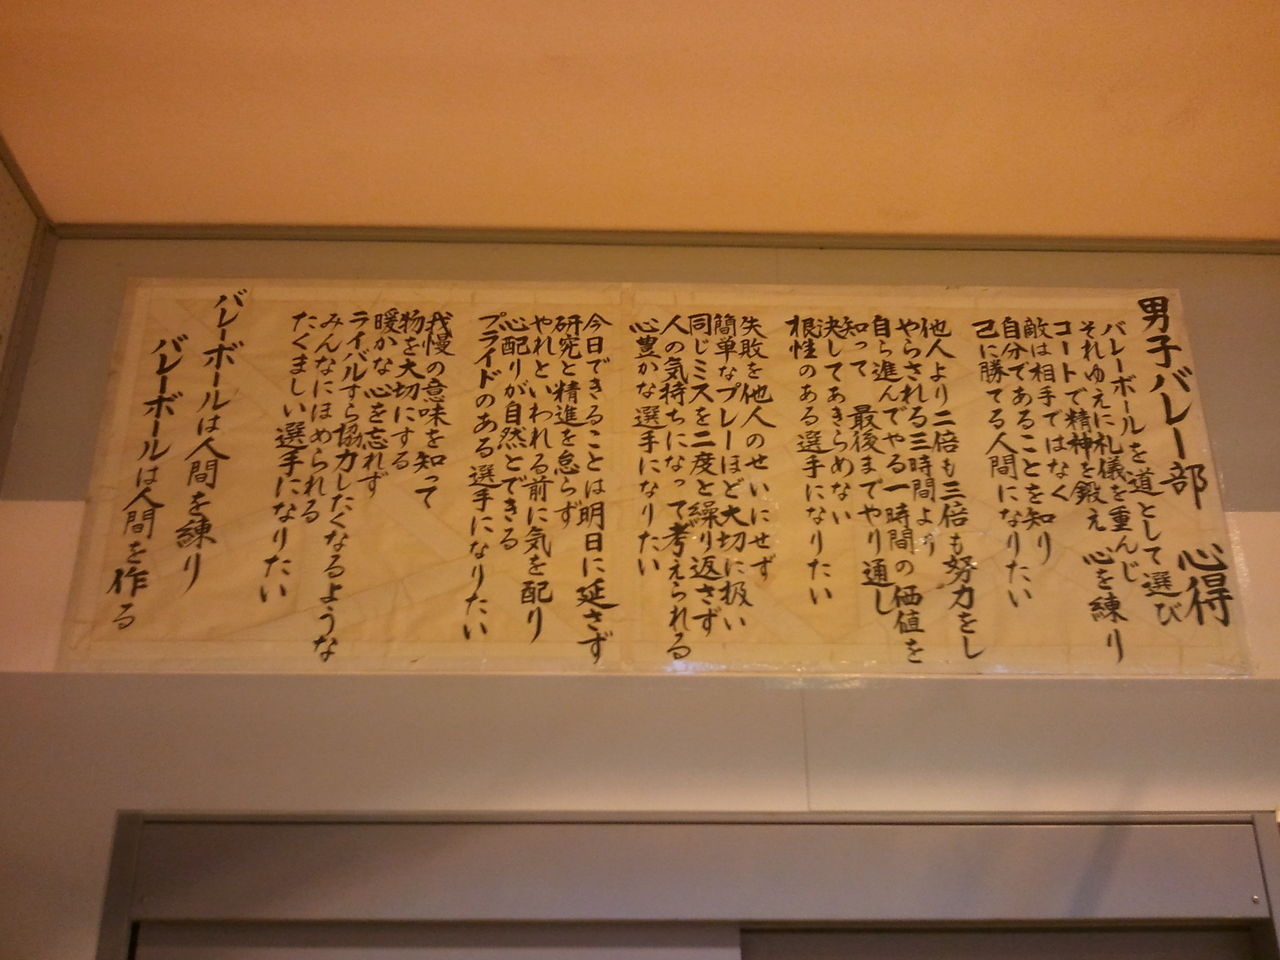 男子バレー部 心得
バレーボールを道として選び
それゆえに礼儀を重んじ
コートで精神を鍛え 心を練り
敵は相手ではなく
自分であることを知り
己に勝てる人間になりたい
他人より二倍も三倍も努力をし
やらされる三時間より
自ら進んでやる一時間の価値を
知って 最後までやり通し
決してあきらめない
根性のある選手になりたい
失敗を他人のせいにせず
簡単なプレーほど大切に扱い
同じミスを二度と繰り返さず
人の気持ちになって考えられる
心豊かな選手になりたい
今日できることは明日に延さず
研究と精進を怠らず
やれといわれる前に気を配り
心配りが自然とできる
プライドのある選手になりたい
我慢の意味を知って
物を大切にする
暖かな心を忘れず
ライバルすら協力したくなるような
みんなにほめられる
たくましい選手になりたい
バレーボールは人間を練り
バレーボールは人間を作る